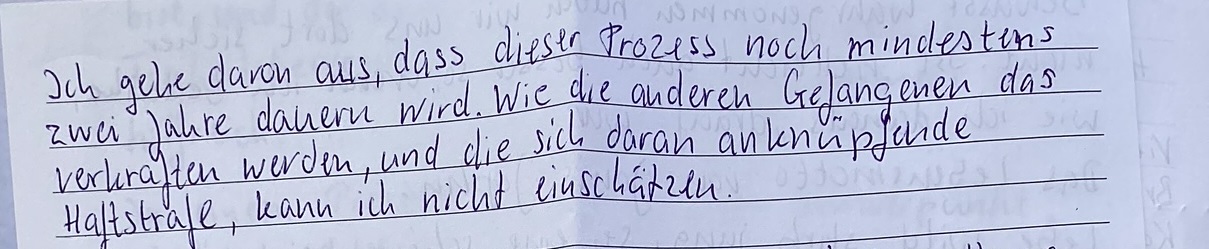 Ich gehe davon aus, dass dieser Prozess noch mindestens
zwei Jahre dauern wird. Wie die anderen Gefangenen das
verkraften werden, und die sich daran anknüpfende
Haftstrafe, kann ich nicht einschätzen.